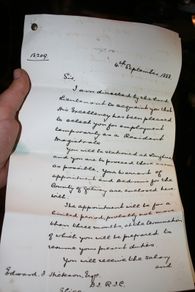 13209
6th September 1888
Sir,
I am directed by the Lord
Lieutenant to acquaint you that
His Excellency has been pleased
to select you for employment
temporarily as a Resident
Magistrate.
You will be stationed at
and you are to proceed there as soon
as possible. Your Warrant of
appointment and Dedimus for the
County of are enclosed here
with.
The appointment will be for a
limited period, probably not more
than three months, at the termination
of which you will be prepared to
resume your present duties.
You will receive the salary and
Edward
D.I. R.I.C.